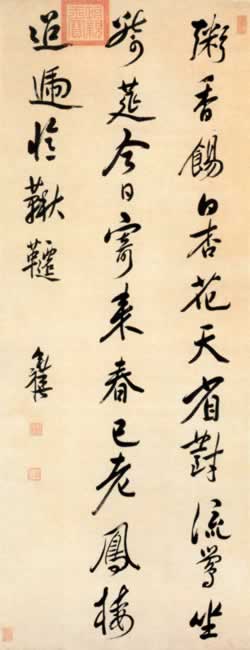 粥香餳白杏花天省對流鶯坐
綺筵今日寄來春已老鳳樓
迢遞憶鞦韆